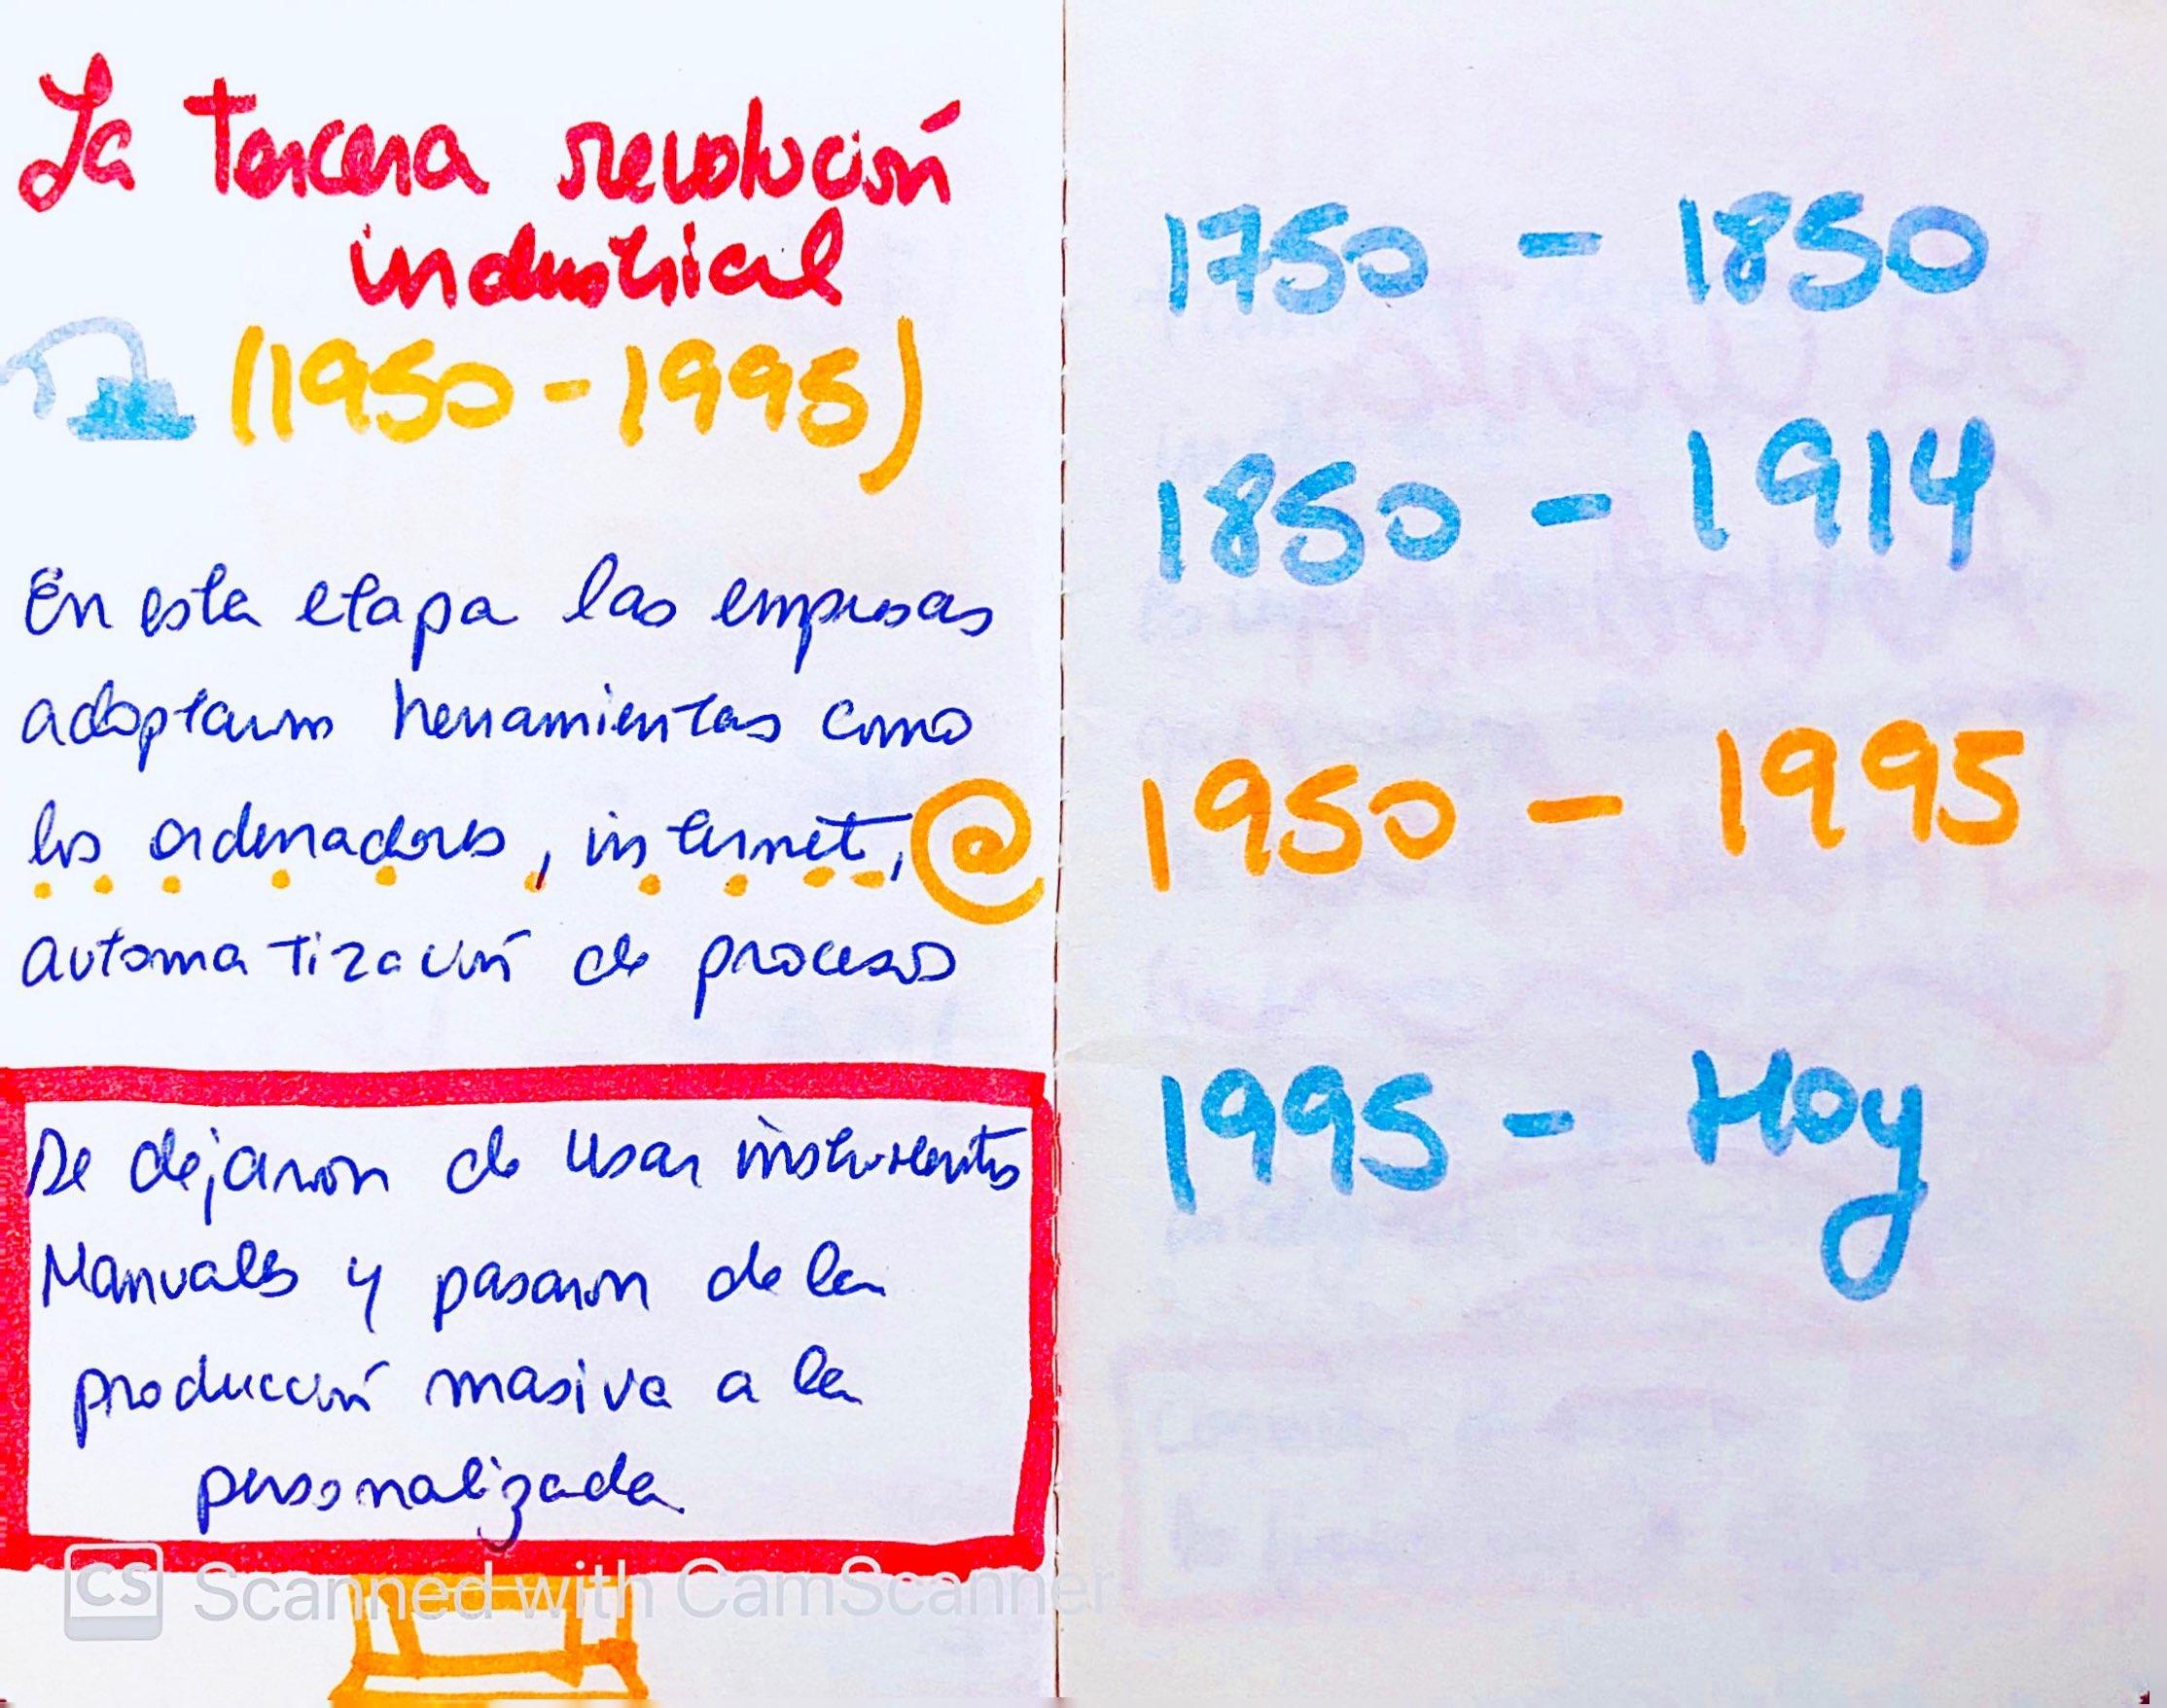 La Tercera revolución
industrial
(1950 - 1995)
En esta etapa las empresas
adoptaron herramientas como
los ordenadores, internet, @
automatización de procesos
Se dejaron de usar instrumentos
Manuales y pasaron de la
producción masiva a la
personalizada
CS Scanned with CamScanner
1750 - 1850
1850 - 1914
1950 - 1995
1995 - Hoy